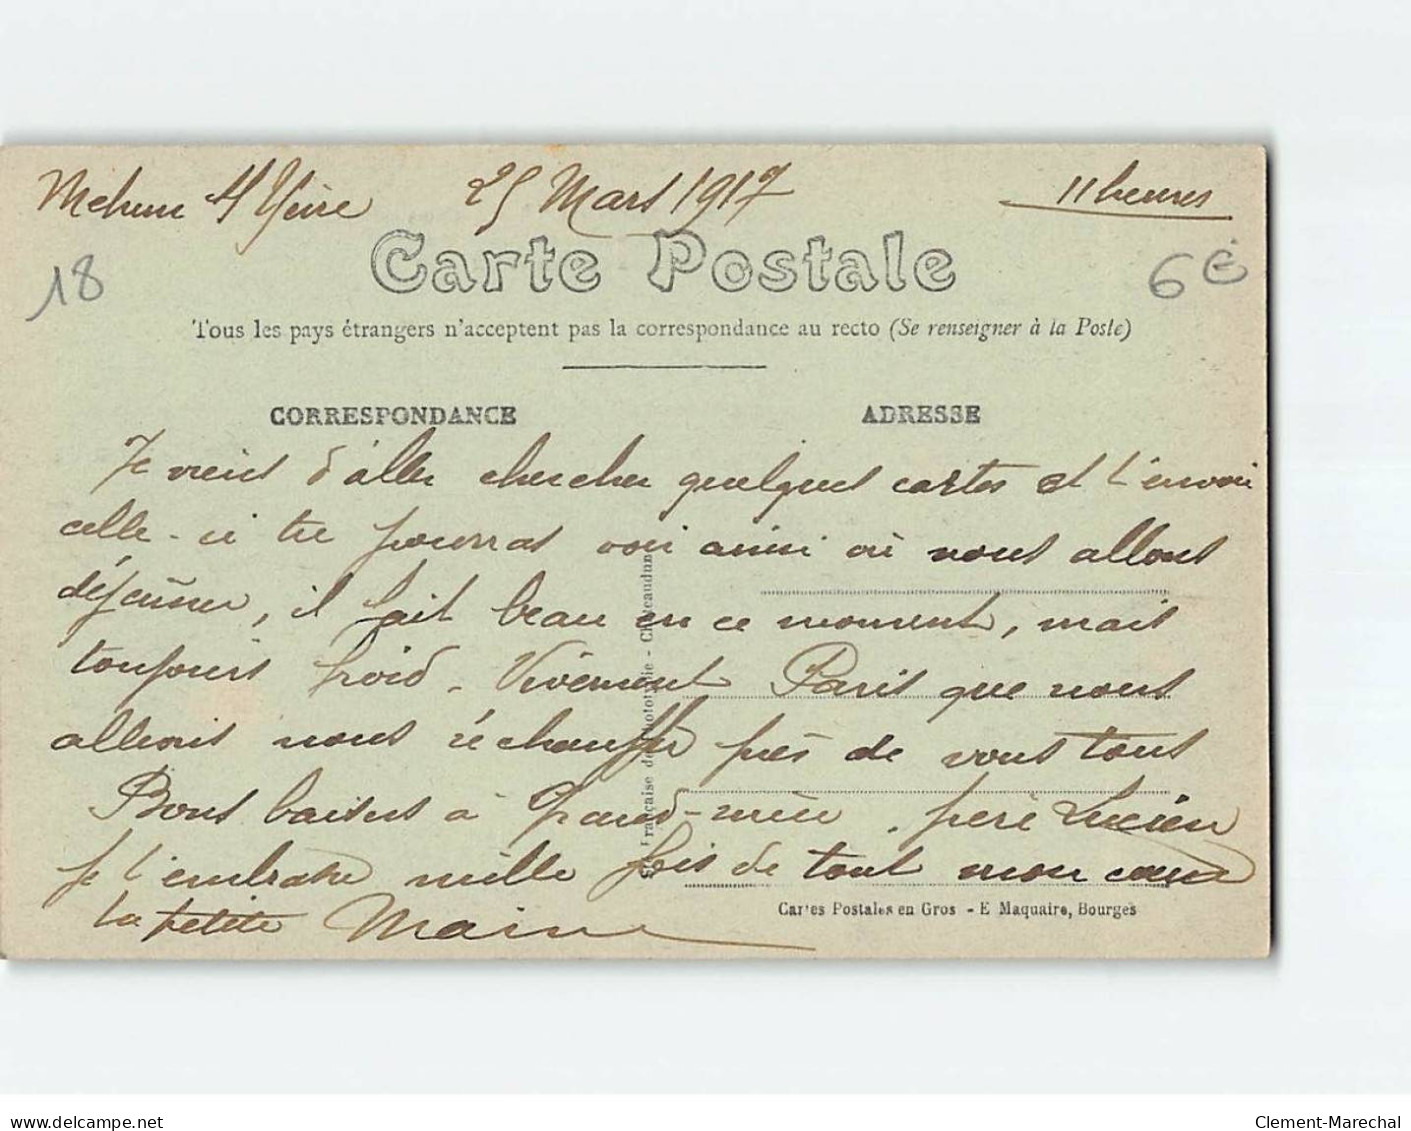 Mehun s/ Yèvre 25 Mars 1917 11 heures
18
6€
Carte Postale
Tous les pays étrangers n'acceptent pas la correspondance au recto (Se renseigner à la Poste)
CORRESPONDANCE
ADRESSE
Je viens d'aller chercher quelques cartes et t'envoi
celle-ci tu pourras voir ainsi où nous allons
déjeuner, il fait beau en ce moment, mais
toujours froid. Vivement Paris que nous
allions nous réchauffer près de vous tous
Bons baisers à Grand-mère, père Lucien
Je t'embrasse mille fois de tout mon cœur
ta petite
française de phototypie - Châteaudun
Cartes Postales en Gros - E Maquaire, Bourges
delcampe.net
Clement-Marechal